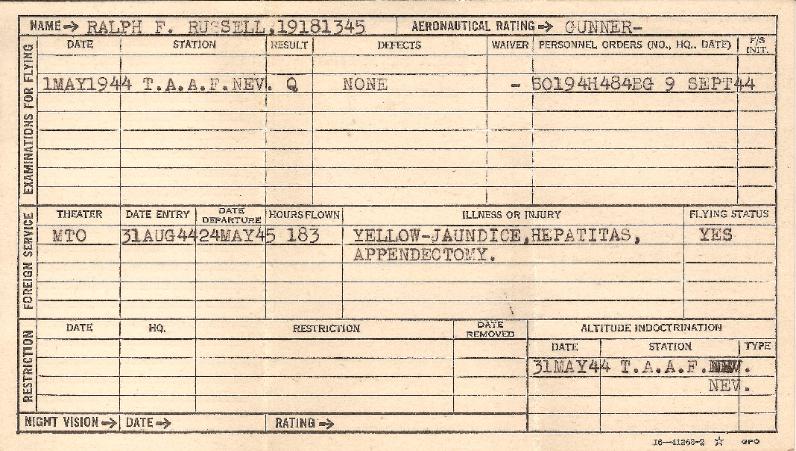 NAME→ RALPH F. RUSSELL,19181345 AERONAUTICAL RATING→ GUNNER-
EXAMINATIONS FOR FLYING
DATE STATION RESULT DEFECTS WAIVER PERSONNEL ORDERS (NO., HQ., DATE) F/S INIT.
1MAY1944 T.A.A.F.NEV. Q NONE - SO194H484BG 9 SEPT44
FOREIGN SERVICE
THEATER DATE ENTRY DATE DEPARTURE HOURS FLOWN ILLNESS OR INJURY FLYING STATUS
MTO 31AUG44 24MAY45 183 YELLOW-JAUNDICE,HEPATITAS, YES
APPENDECTOMY.
RESTRICTION
DATE HQ. RESTRICTION DATE REMOVED ALTITUDE INDOCTRINATION
DATE STATION TYPE
31MAY44 T.A.A.F.NEV.
NEV.
NIGHT VISION→ DATE→ RATING→
16—41268-2 ☆ GPO